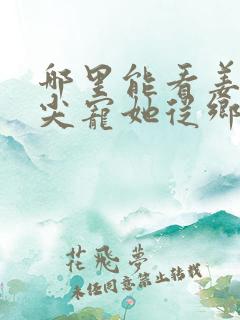 哪里能看姜
尖寵她從鄉
花飛夢
未經同意禁止轉載